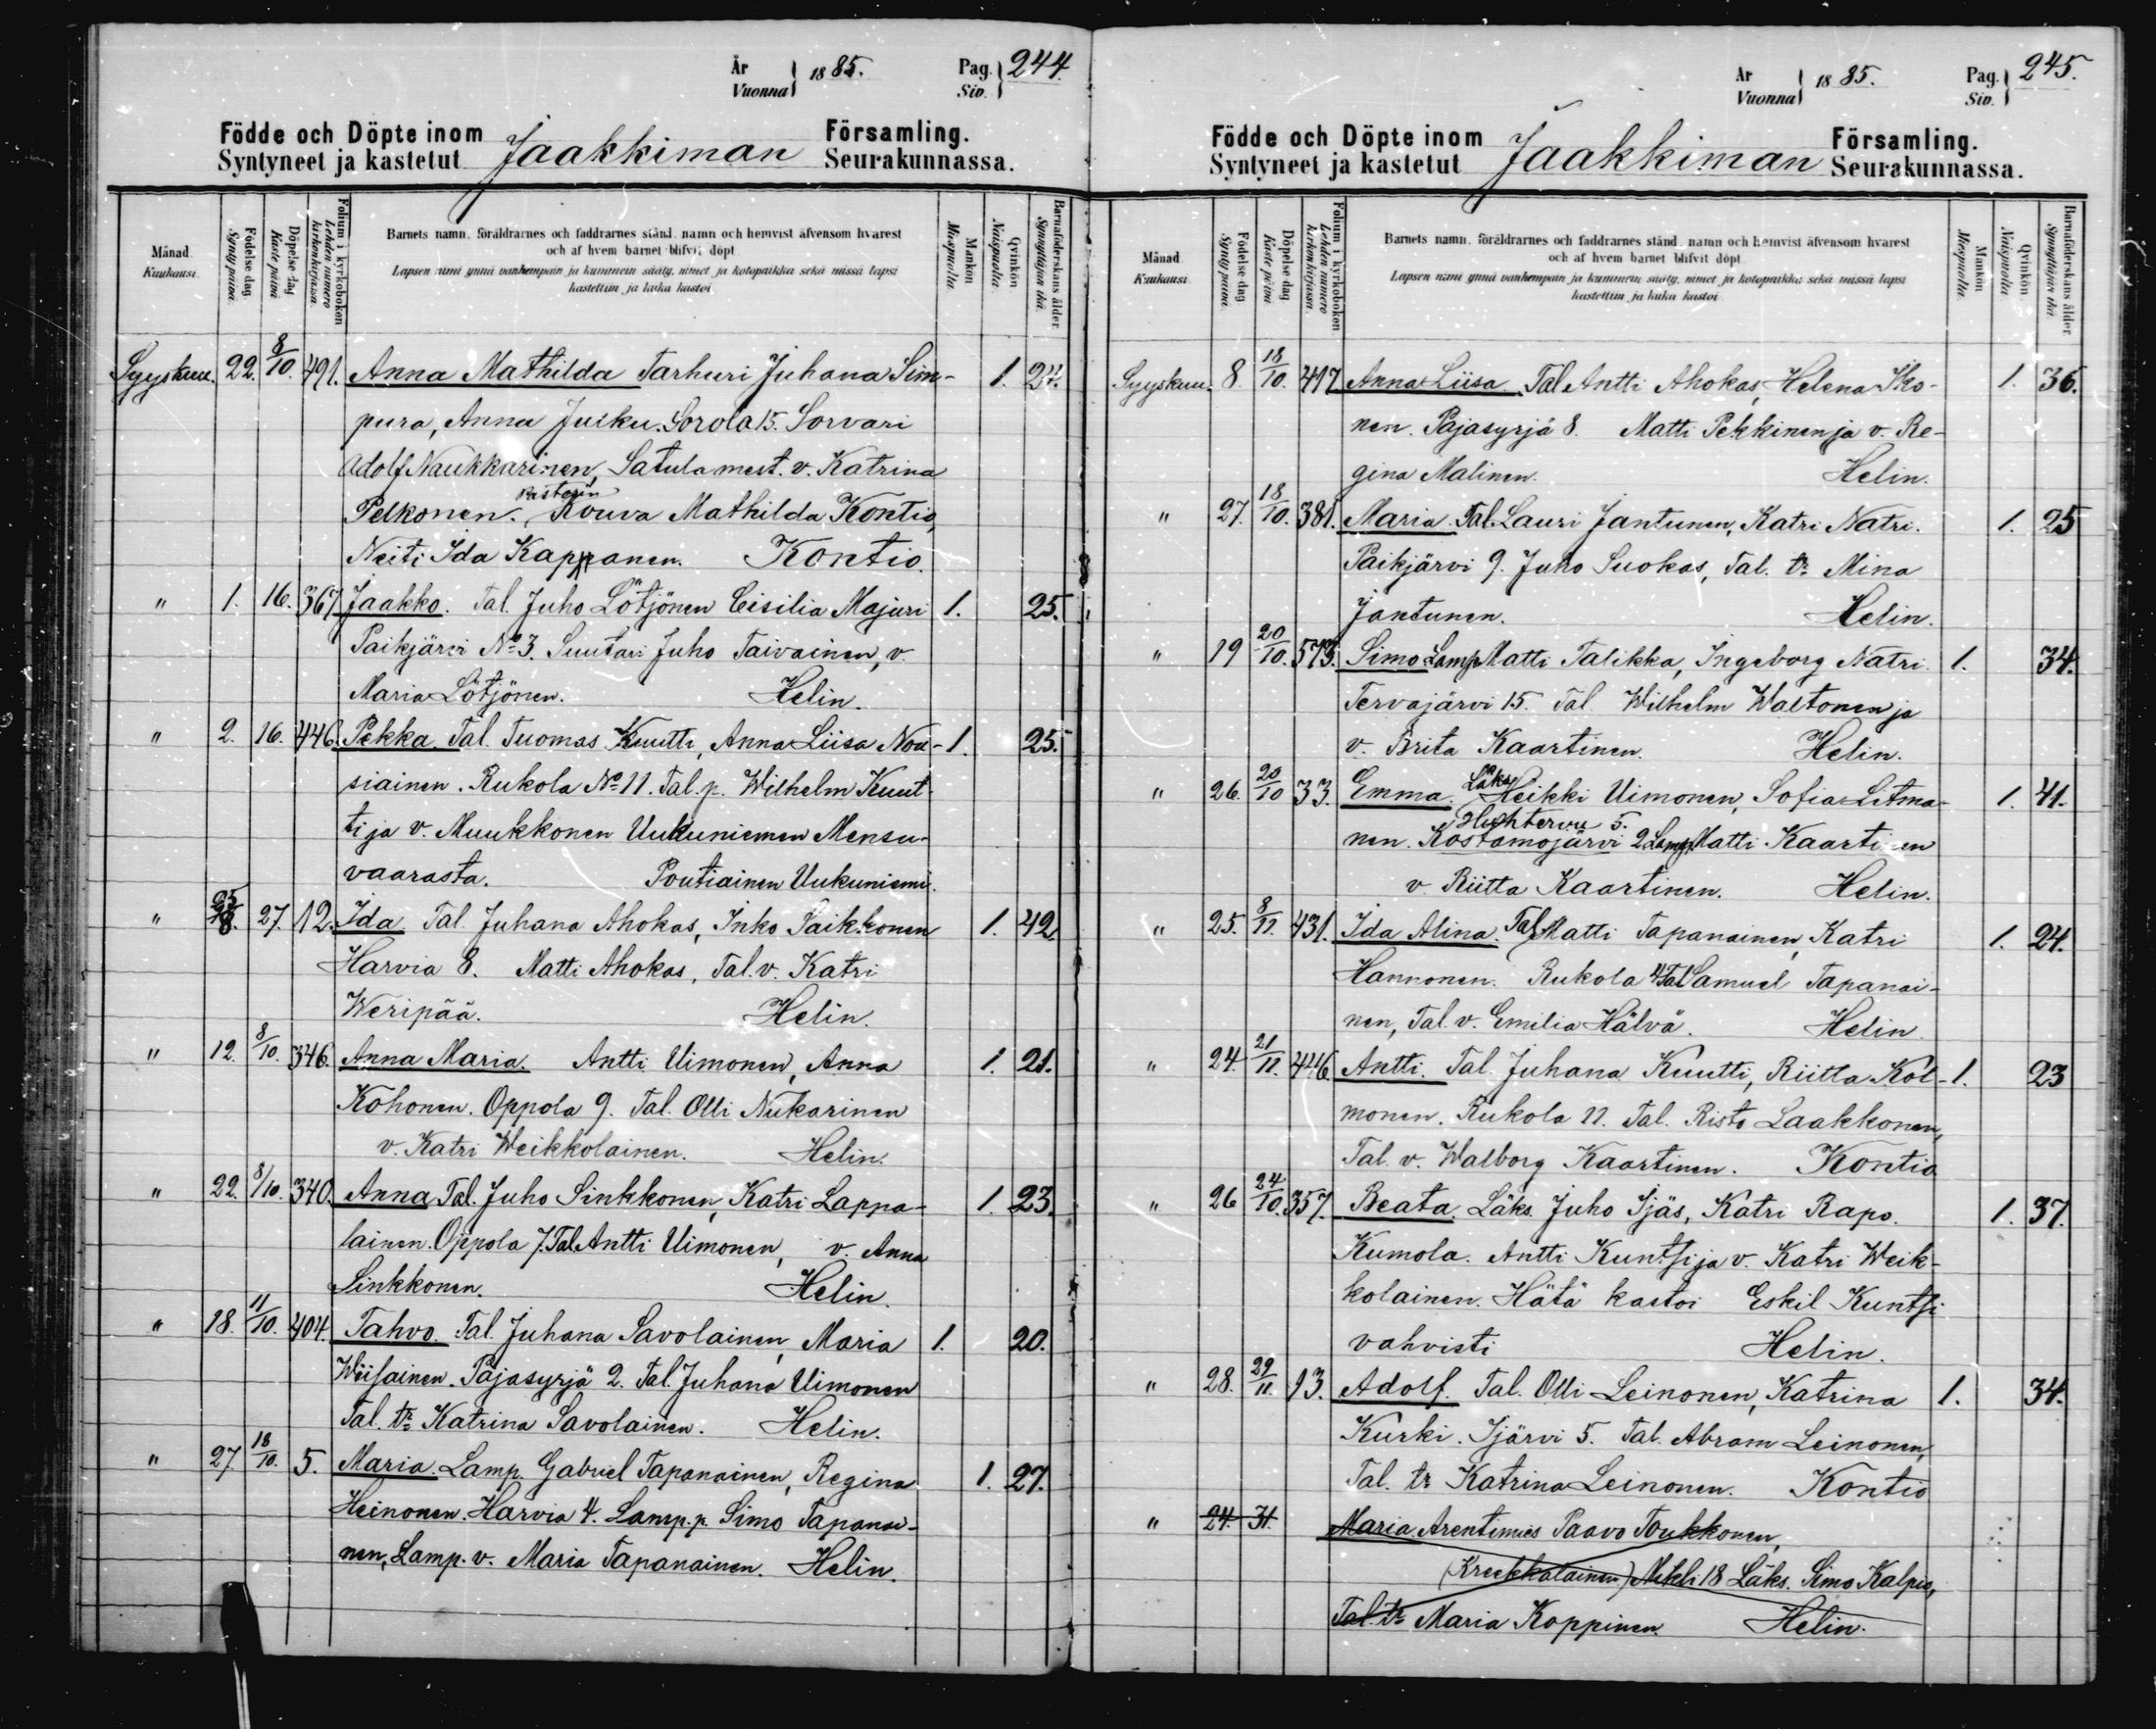 År
Vuonna } 1885.
Pag.
Siv. } 244
Födde och Döpte inom Jaakkiman Församling.
Syntyneet ja kastetut Seurakunnassa.
Månad.
Kuukausi.
Födelse dag.
Synty päivä.
Döpelse dag
Kaste päivä
Folium i kyrkobokon
Lehden numero kirkonkirjassa.
Barnets namn, föräldrarnes och faddrarnes stånd, namn och hemvist äfvensom hvarest
och af hvem barnet blifvit döpt
Lapsen nimi ynnä vanhempain ja kummein sääty, nimet ja kotopaikka sekä missä lapsi
kastettiin ja kuka kastoi
Mankön
Miespuolia.
Qvinkön
Naispuolia.
Barnaföderskans ålder.
Synnyttäjän ikä.
Syyskuu. 22. 8/10. 491. Anna Mathilda Tarhuri Juhana Sim- 1. 24.
pura, Anna Juiku. Sorola 15. Sorvari
Adolf Naukkarinen, Satulamest. v. Katrina
Pelkonen. Pastorin Rouva Mathilda Kontio,
Neiti Ida Kappanen. Kontio.
" 1. 16. 367 Jaakko. Tal. Juho Lötjönen Cisilia Majuri 1. 25.
Paikjärvi No 3. Suutari Juho Taivainen, v.
Maria Lötjönen. Helin.
" 2. 16. 446. Pekka Tal. Tuomas Kuutti, Anna Liisa Nou- 1. 25.
siainen. Rukola No 11. Tal. p. Wilhelm Kuut-
ti ja v. Muukkonen Uukuniemen Mensu-
vaarasta. Poutiainen Uukuniemi.
" 25 27. 12. Ida Tal. Juhana Ahokas, Inko Saikkonen 1. 42
Harvia 8. Matti Ahokas, Tal. v. Katri
Weripää. Helin.
" 12. 8/10. 346. Anna Maria. Antti Uimonen, Anna 1. 21.
Kohonen. Oppola 9. Tal. Olli Nukarinen
v. Katri Weikkolainen. Helin.
" 22. 8/10. 340. Anna Tal. Juho Sinkkonen, Katri Lappa- 1. 23.
lainen. Oppola 7. Tal. Antti Uimonen, v. Anna
Sinkkonen. Helin.
" 18. 11/10. 404. Tahvo. Tal. Juhana Savolainen, Maria 1. 20.
Wiisainen. Pajasyrjä 2. Tal. Juhana Uimonen
Tal. tr Katrina Savolainen. Helin.
" 27 18/10. 5. Maria. Lamp. Gabriel Tapanainen, Regina 1. 27.
Heinonen. Harvia 4. Lamp. p. Simo Tapanai-
nen, Lamp. v. Maria Tapanainen. Helin.
År
Vuonna } 1885.
Pag.
Siv. } 245.
Födde och Döpte inom Jaakkiman Församling.
Syntyneet ja kastetut Seurakunnassa.
Månad.
Kuukausi.
Födelse dag
Synty päivä.
Döpelse dag
Kaste päivä
Folium i kyrkobokon
Lehden numero kirkonkirjassa.
Barnets namn, föräldrarnes och faddrarnes stånd, namn och hemvist äfvensom hvarest
och af hvem barnet blifvit döpt
Lapsen nimi ynnä vanhempain ja kummein sääty, nimet ja kotopaikka sekä missä lapsi
kastettiin ja kuka kastoi
Mankön
Miespuolia.
Qvinkön
Naispuolia
Barnaföderskans ålder.
Synnyttäjän ikä.
Syyskuu. 8. 18/10. 417 Anna Liisa Tal. Antti Ahokas, Helena Iko- 1. 36.
nen. Pajasyrjä 8. Matti Pekkinen ja v. Re-
gina Malinen. Helin.
" 27. 18/10. 381. Maria. Tal. Lauri Jantunen, Katri Natri. 1. 25
Paikjärvi 9. Juho Suokas, Tal. tr. Mina
Jantunen. Helin.
" 19 20/10. 573. Simo Lamp Matti Talikka, Ingeborg Natri 1. 34.
Tervajärvi 15. Tal. Wilhelm Waltonen ja
v. Brita Kaartinen. Helin.
" 26. 20/10 33. Emma. Läks Heikki Uimonen, Sofia Litma- 1. 41.
Huhtervu 5.
nen. Kostamojärvi 2 Lamp Matti Kaartinen
v. Riitta Kaartinen. Helin.
" 25. 8/11. 431. Ida Alina. Tal Matti Tapanainen, Katri 1. 24.
Hannonen. Rukola 4 Tal Samuel Tapanai-
nen, Tal. v. Emilia Hälvä. Helin
" 24. 21/11. 446 Antti. Tal. Juhana Kuutti, Riitta Kol- 1. 23
monen. Rukola 11. Tal. Risto Laakkonen,
Tal. v. Walborg Kaartinen. Kontio
" 26 24/10. 357. Beata. Läks. Juho Ijäs, Katri Rapo. 1. 37.
Kumola. Antti Kuntsi ja v. Katri Weik-
kolainen. Hätä kastoi Eskil Kuntsi
vahvisti Helin.
" 28. 29/11. 13. Adolf. Tal. Olli Leinonen, Katrina 1. 34.
Kurki. Ijärvi 5. Tal. Abram Leinonen,
Tal. tr Katrina Leinonen. Kontio
" 24. 31. Maria Arentimies Paavo Toukkonen,
(Kreekkalainen) Mikli 18 Läks. Simo Kalpio,
Tal. tr Maria Koppinen. Helin.